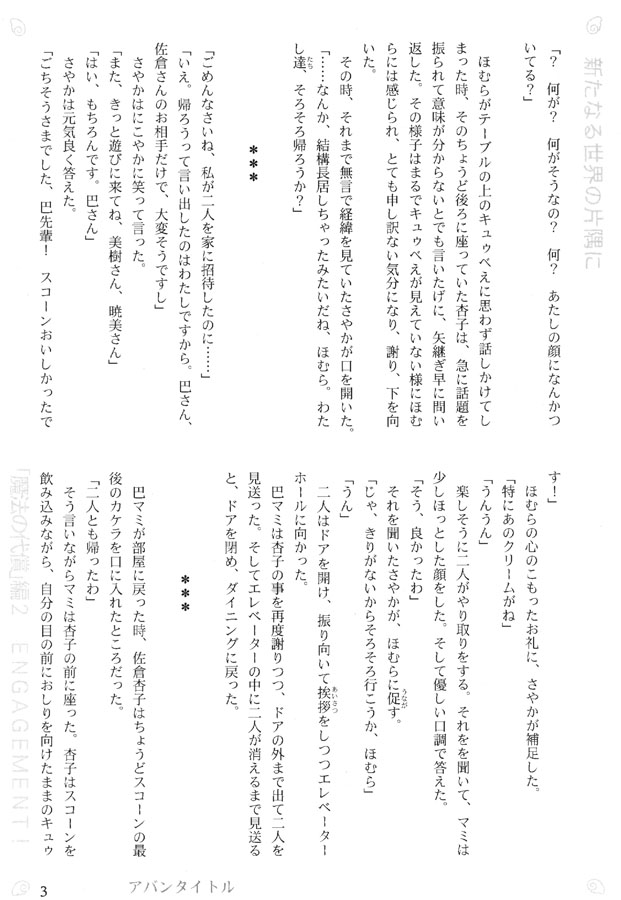 新たなる世界の片隅に
「？　何が？　何がそうなの？　何？　あたしの顔になんかつ
いてる？」
　ほむらがテーブルの上のキュゥべえに思わず話しかけてし
まった時、そのちょうど後ろに座っていた杏子は、急に話題を
振られて意味が分からないとでも言いたげに、矢継ぎ早に問い
返した。その様子はまるでキュゥべえが見えていない様にほむ
らには感じられ、とても申し訳ない気分になり、謝り、下を向
いた。
　その時、それまで無言で経緯を見ていたさやかが口を開いた。
「……なんか、結構長居しちゃったみたいだね、ほむら。わた
し達、そろそろ帰ろうか？」
＊＊＊
「ごめんなさいね、私が二人を家に招待したのに……」
「いえ。帰ろうって言い出したのはわたしですから。巴さん、
佐倉さんのお相手だけで、大変そうですし」
　さやかはにこやかに笑って言った。
「また、きっと遊びに来てね、美樹さん、暁美さん」
「はい、もちろんです。巴さん」
　さやかは元気良く答えた。
「ごちそうさまでした、巴先輩！　スコーンおいしかったで
す！」
　ほむらの心のこもったお礼に、さやかが補足した。
「特にあのクリームがね」
「うんうん」
　楽しそうに二人がやり取りをする。それをを聞いて、マミは
少しほっとした顔をした。そして優しい口調で答えた。
「そう、良かったわ」
　それを聞いたさやかが、ほむらに促す。
「じゃ、きりがないからそろそろ行こうか、ほむら」
「うん」
　二人はドアを開け、振り向いて挨拶をしつつエレベーター
ホールに向かった。
　巴マミは杏子の事を再度謝りつつ、ドアの外まで出て二人を
見送った。そしてエレベーターの中に二人が消えるまで見送る
と、ドアを閉め、ダイニングに戻った。
＊＊＊
　巴マミが部屋に戻った時、佐倉杏子はちょうどスコーンの最
後のカケラを口に入れたところだった。
「二人とも帰ったわ」
　そう言いながらマミは杏子の前に座った。杏子はスコーンを
飲み込みながら、自分の目の前におしりを向けたままのキュゥ
「魔法の代償」編２　ENGAGEMENT！
アバンタイトル
3